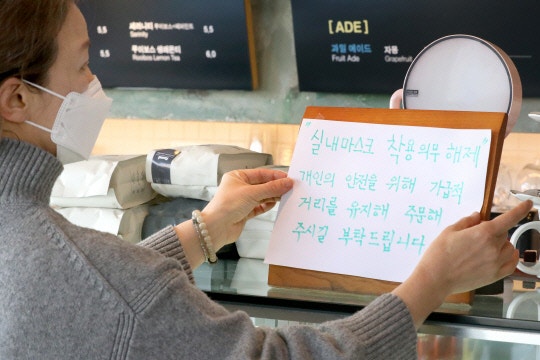 세레니티 루이보스+페퍼민트 5.5
Serenity
루이보스 레몬티 5.5
Rooibos Lemon Tea
[ADE]
과일 에이드 자몽
Fruit Ade Grapefruit
"실내마스크 착용의무 해제"
개인의 안전을 위해 가급적
거리를 유지해 주문해
주시길 부탁드립니다